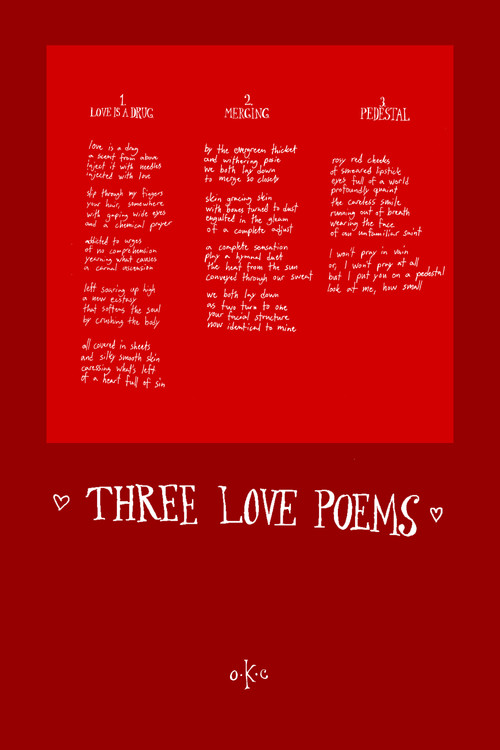 1.
LOVE IS A DRUG
love is a drug
a scent from above
inject it with needles
injected with love
slip through my fingers
your hair, somewhere
with gaping wide eyes
and a chemical prayer
addicted to urges
of no comprehension
yearning what causes
a carnal ascension
left soaring up high
a new ecstasy
that softens the soul
by crushing the body
all covered in sheets
and silky smooth skin
caressing what's left
of a heart full of sin
2.
MERGING
by the evergreen thicket
and withering pose
we both lay down
to merge so closely
skin grazing skin
with bones turned to dust
engulfed in the gleam
of a complete adjust
a complete sensation
play a hymnal duet
the heat from the sun
conveyed through our sweat
we both lay down
as two turn to one
your facial structure
now identical to mine
3.
PEDESTAL
rosy red cheeks
of smeared lipstick
eyes full of a world
profoundly quaint
the careless smile
running out of breath
wearing the face
of an unfamiliar saint
I won't pray in vain
or, I won't pray at all
but I put you on a pedestal
look at me, how small
♡ THREE LOVE POEMS ♡
o.K.c